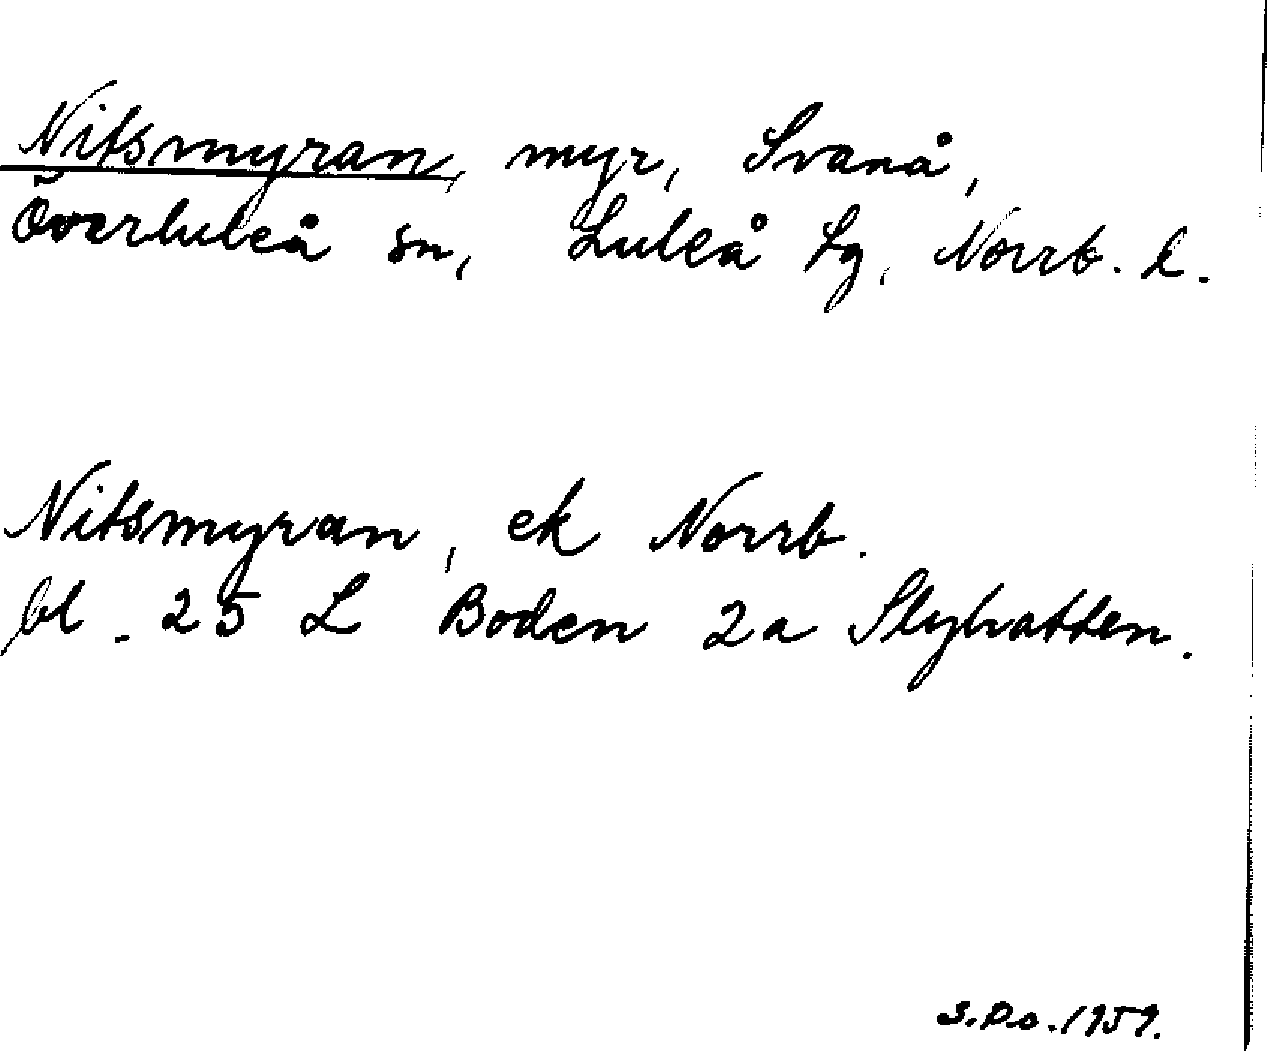 Nitsmyran, myr, Svanå,
Överluleå sn, Luleå tg, Norrb. l.
Nitsmyran, ek Norrb.
bl. 25 L Boden 2a Slyhatten.
S.P.o. 1959.